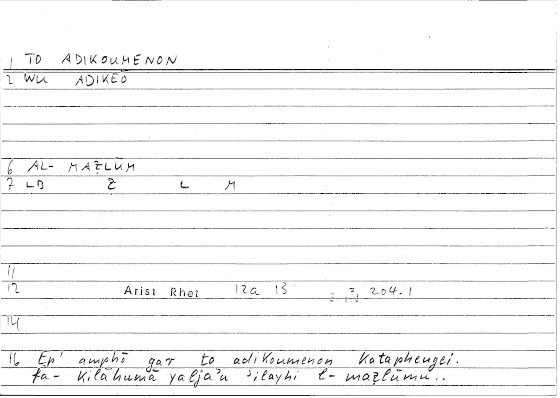 1 TO ADIKOUMENON
2 WU ADIKEŌ
6 AL- MAẒLŪM
7 LB Ẓ L M
11
12 Arist Rhet 12a 13 204.1
14
16 Ep' amphō gar to adikoumenon kataphengei.
fa- kilāhumā yalja'u 'ilayhi l- maẓlūmu..